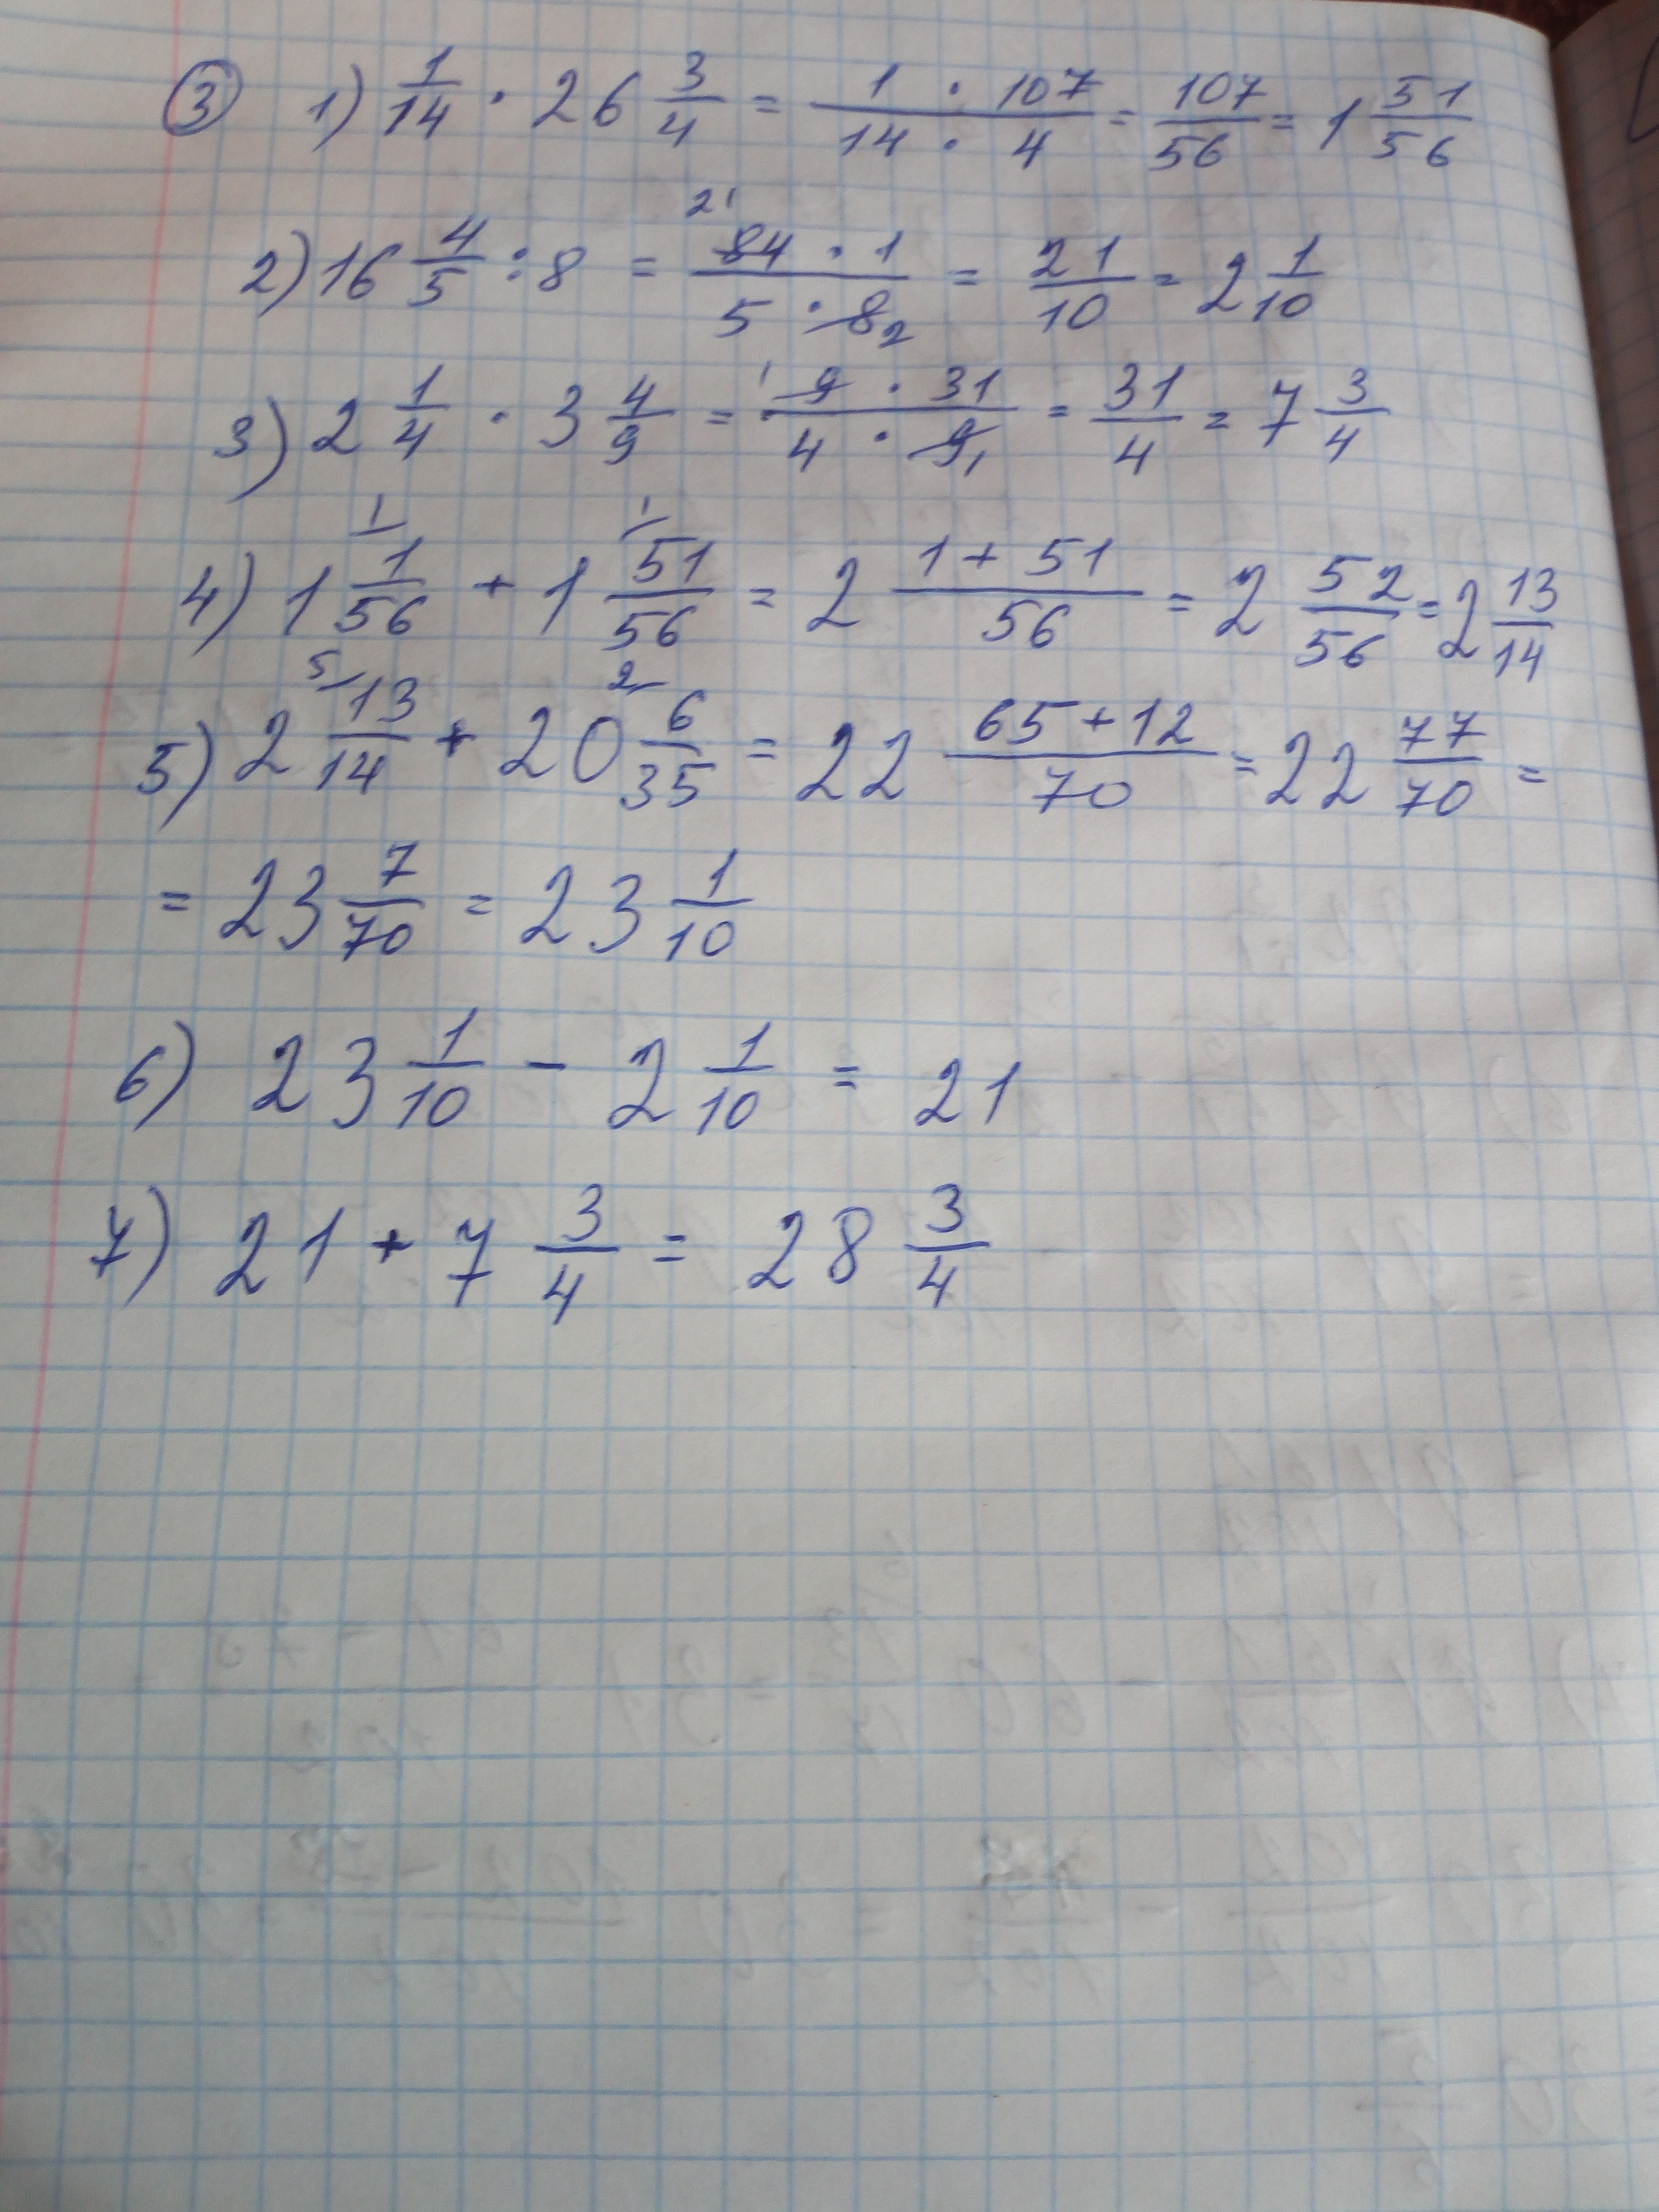 ③ 1) 1/14 · 26 3/4 = 1 · 107 / 14 · 4 = 107/56 = 1 51/56
2) 16 4/5 : 8 = 84 · 1 / 5 · 8 = 21/10 = 2 1/10
3) 2 1/4 · 3 4/9 = 9 · 31 / 4 · 9 = 31/4 = 7 3/4
4) 1 1/56 + 1 51/56 = 2 1 + 51 / 56 = 2 52/56 = 2 13/14
5) 2 13/14 + 20 6/35 = 22 65 + 12 / 70 = 22 77/70 =
= 23 7/70 = 23 1/10
6) 23 1/10 - 2 1/10 = 21
7) 21 + 7 3/4 = 28 3/4